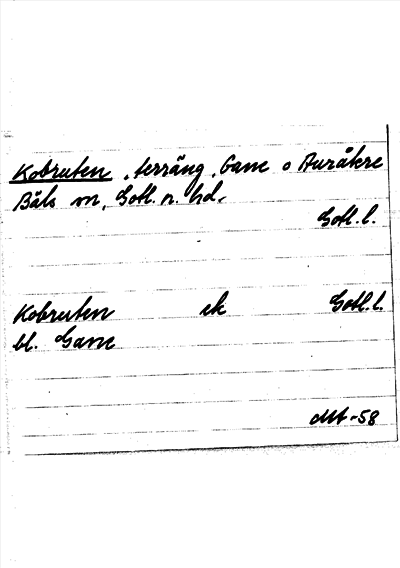 Kobruten, terräng, Gane o Auråkre
Bäls sn, Gotl. n. hd.
Gotl. l.
Kobruten ek Gotl. l.
bl. Gane
-58